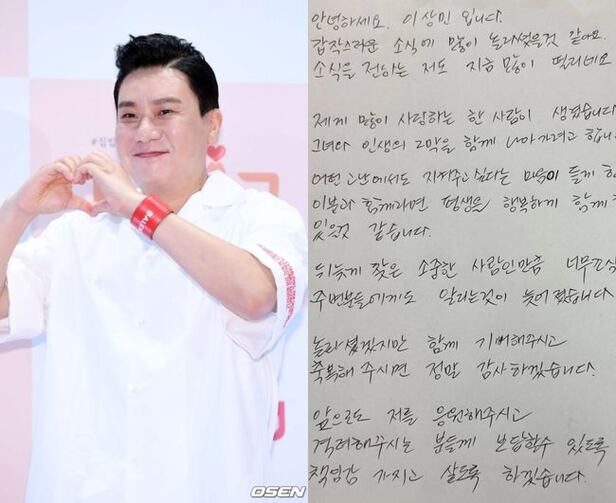 안녕하세요. 이상민 입니다.
갑작스러운 소식에 많이 놀라셨을것 같아요.
소식을 전하는 저도 지금 많이 떨리네요
제게 많이 사랑하는 한 사람이 생겼습니다
그녀와 인생의 2막을 함께 나아가려고 합니
어떤 고난에서도 지켜주고 싶다는 마음이 들게 하
이분과 함께라면 평생을 행복하게 함께 하
있을것 같습니다.
뒤늦게 찾은 소중한 사람인만큼 너무조심
주변분들에게도 알리는것이 늦어졌습니다
놀라셨겠지만 함께 기뻐해주시고
축복해 주시면 정말 감사하겠습니다.
앞으로도 저를 응원해주시고
격려해주시는 분들께 보답할수 있도록
책임감 가지고 살도록 하겠습니다.
OSEN